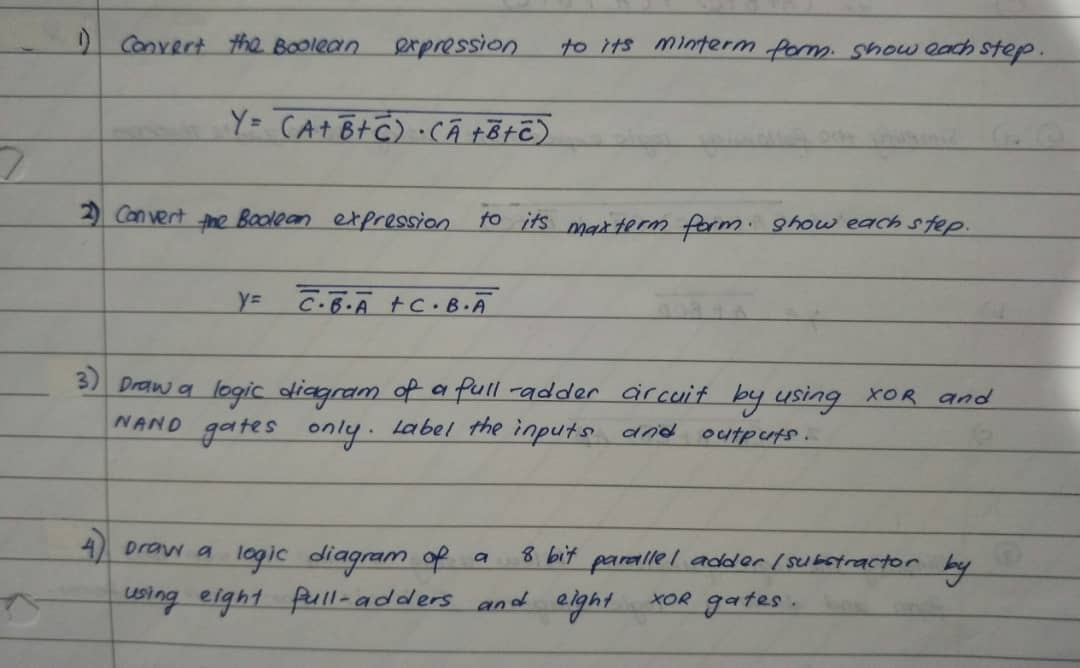 1) Convert the Boolean expression to its minterm form. show each step.
Y = \overline{(A + B̅ + C̅) · (A̅ + B̅ + C̅)}
2) Convert the Boolean expression to its maxterm form. show each step.
Y = \overline{C̅ · B̅ · A̅ + C · B · A̅}
3) Draw a logic diagram of a full-adder circuit by using XOR and
NAND gates only. Label the inputs and outputs.
4) Draw a logic diagram of a 8 bit parallel adder / substractor by
using eight full-adders and eight XOR gates.